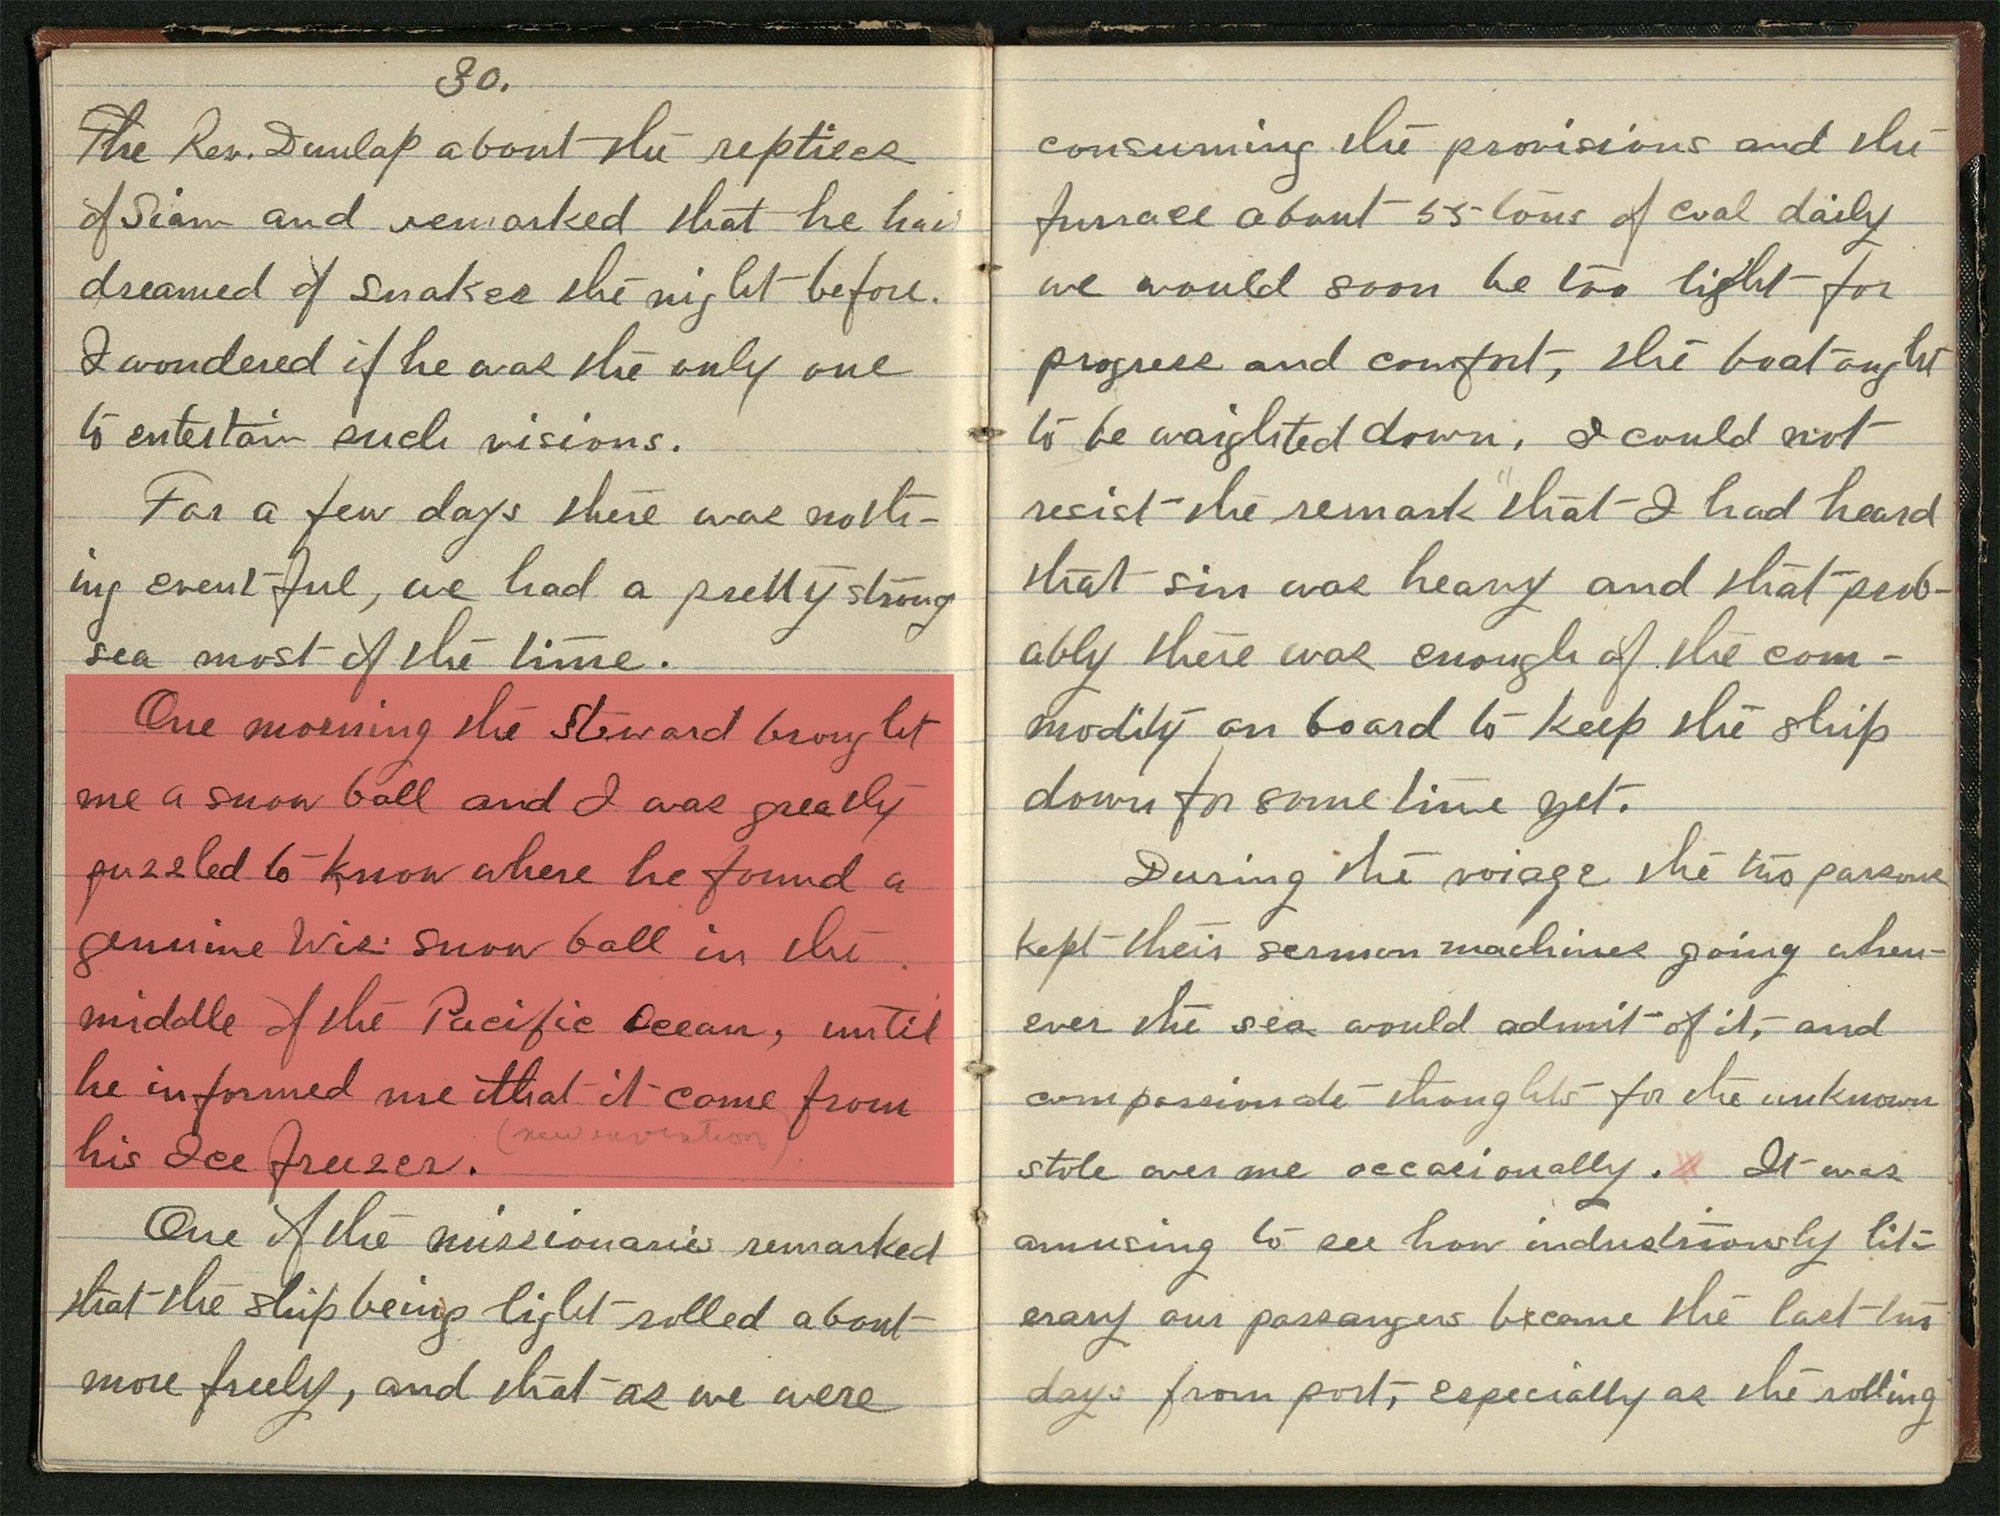 30.
The Rev. Dunlap about the reptiles
of Siam and remarked that he had
dreamed of snakes the night before.
I wondered if he was the only one
to entertain such visions.
For a few days there was noth-
ing eventful, we had a pretty strong
sea most of the time.
One morning the steward brought
me a snow ball and I was greatly
puzzled to know where he found a
genuine Wis: snow ball in the
middle of the Pacific Ocean, until
he informed me that it came from
(new invention)
his Ice freezer.
One of the missionaries remarked
that the ship being light rolled about
more freely, and that as we were
consuming the provisions and the
furnace about 55 tons of coal daily
we would soon be too light for
progress and comfort, the boat ought
to be waighted down. I could not
resist the remark "that I had heard
that sin was heavy and that prob-
ably there was enough of the com-
modity on board to keep the ship
down for some time yet.
During the voiage the two parsons
kept their sermon machines going when-
ever the sea would admit of it, and
compassionate thoughts for the unknown
stole over me occasionally. It was
amusing to see how industriously lit-
erary our passangers became the last two
days from port, especially as the rolling